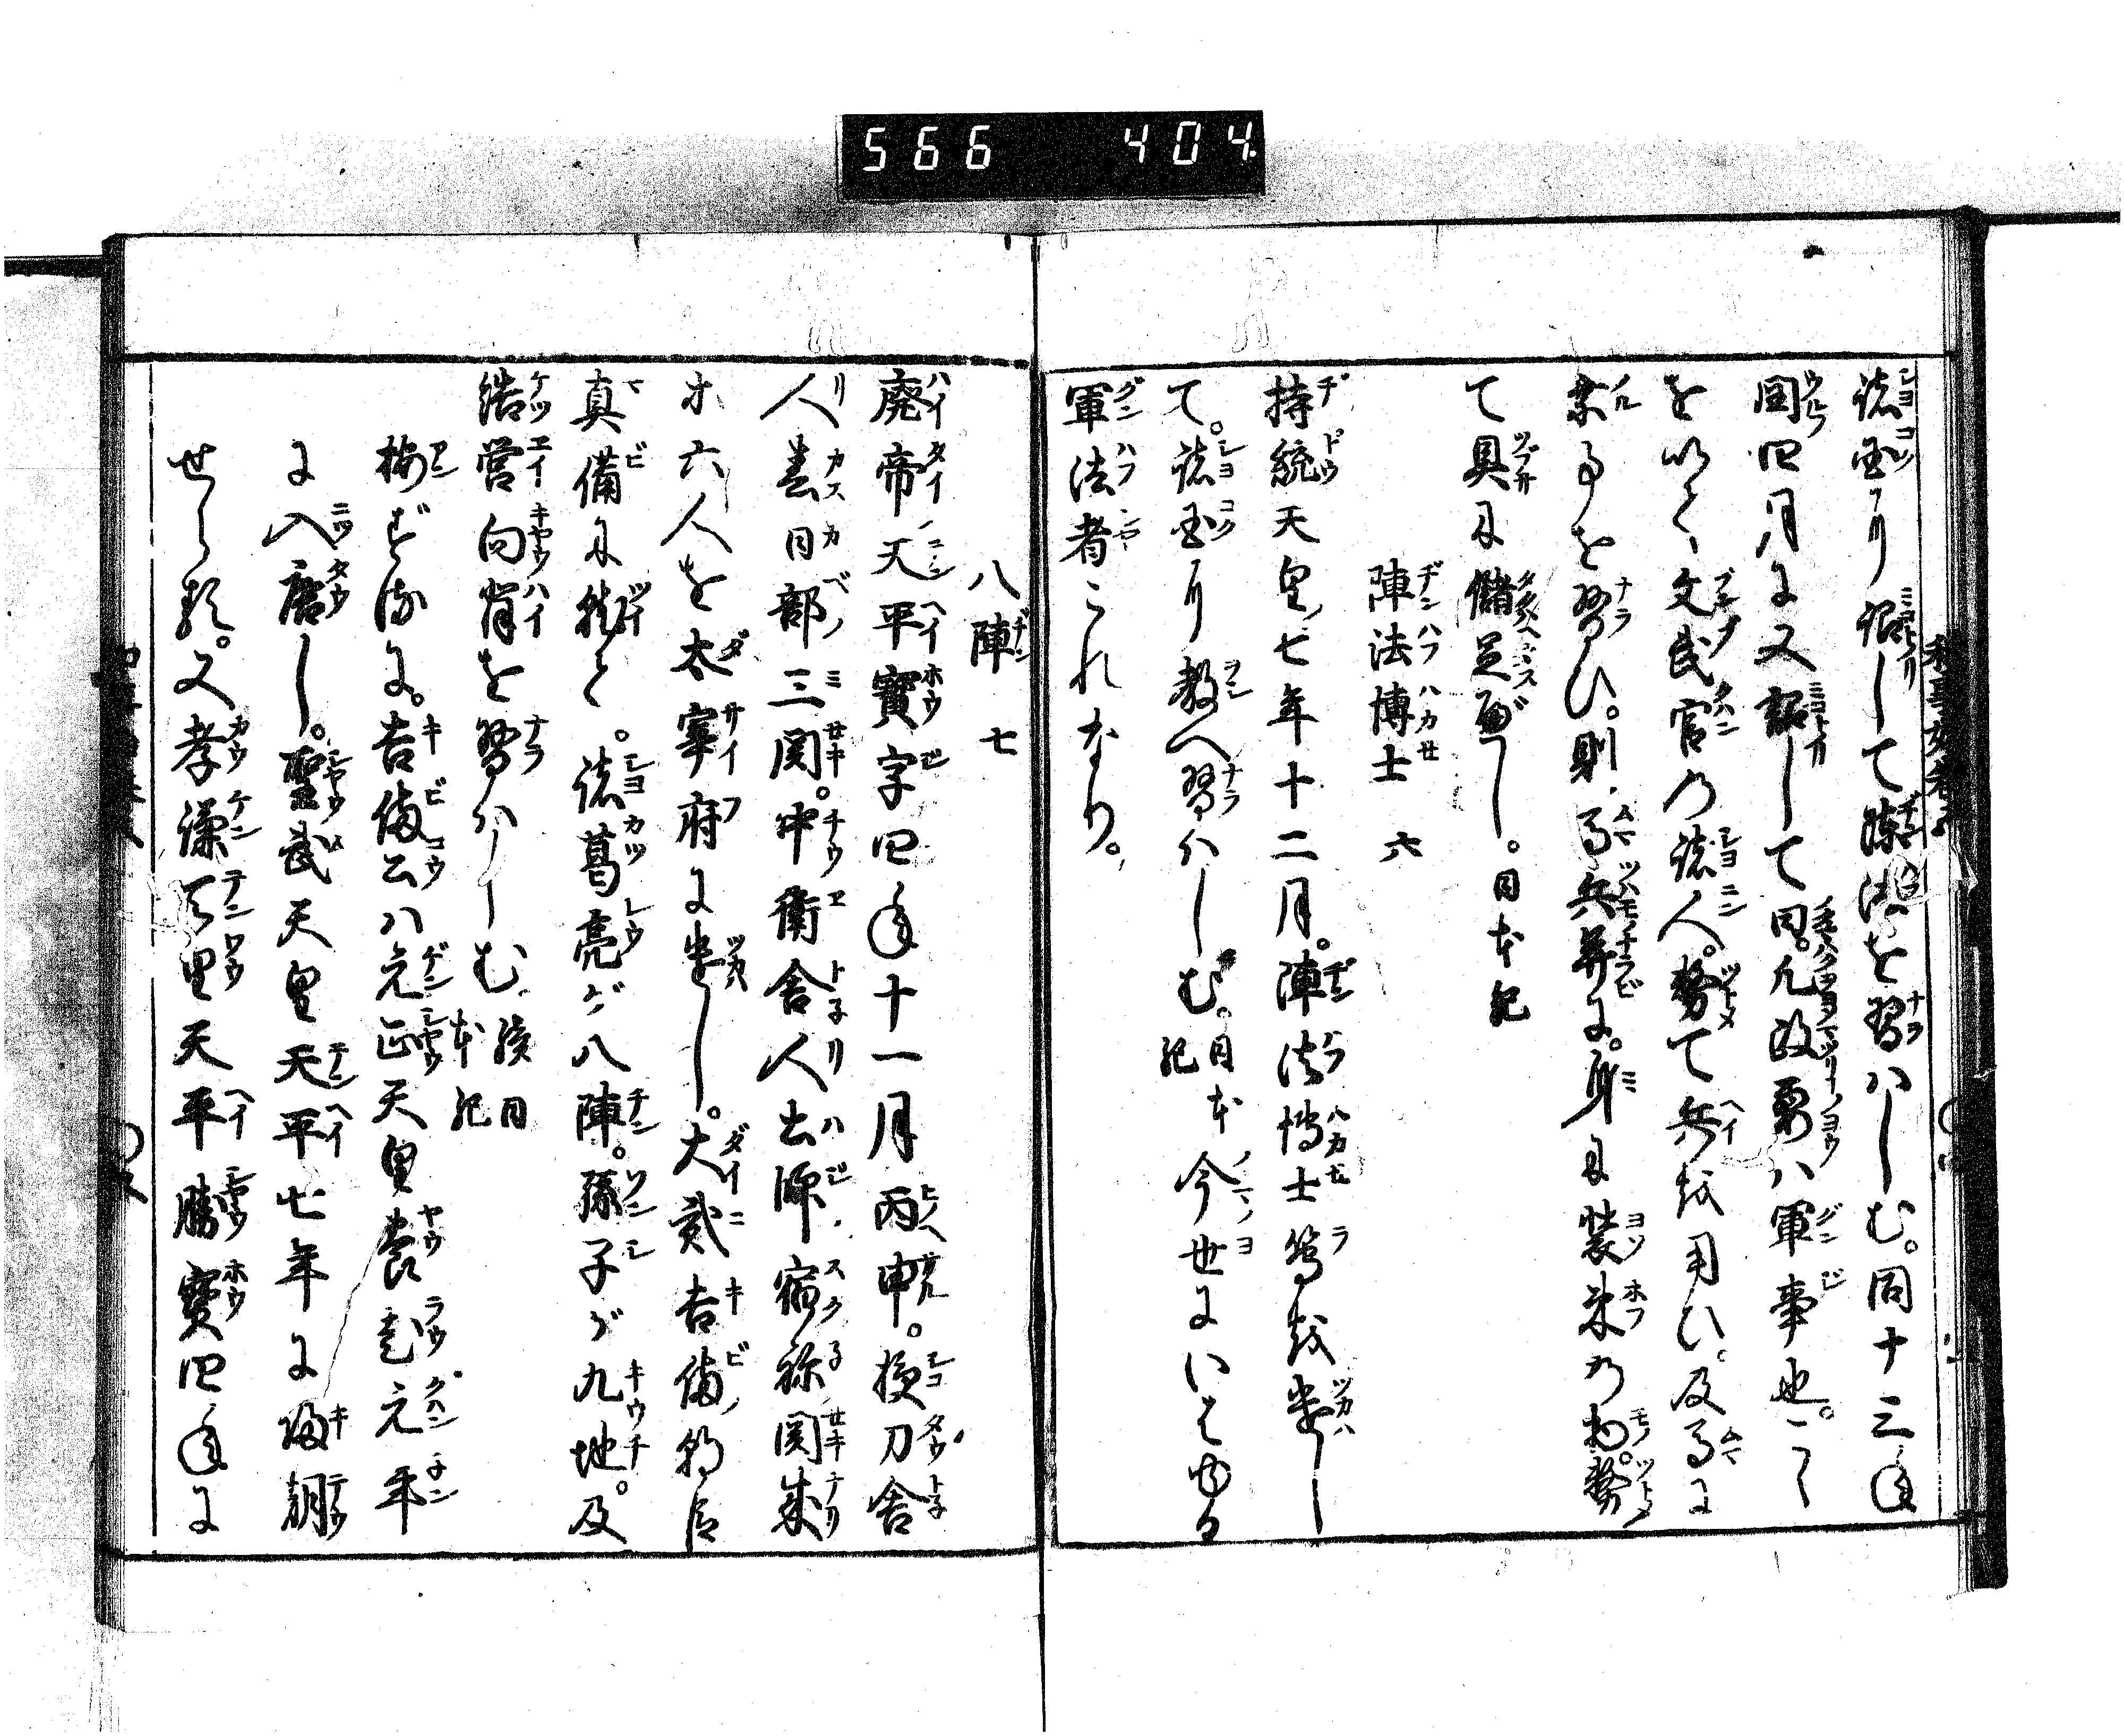 566 404.
諸国に詔して陣法を習ハしむ。同十三年
閏四月に又詔して曰。凡政要ハ軍事也。こゝ
を以て、文武官の諸人。務て兵を用ひ。及馬に
乗る事を習ひ。則馬兵并に。身に装束の物。務
て具に儲足べし。日本紀
陣法博士 六
持統天皇七年十二月。陣法博士等を遣し
て。諸国に教へ習ハしむ。日本紀 今世にいはゆる
軍法者これなり。
八陣 七
廃帝天平寳字四年十一月丙申。授刀舎
人春日部三関。中衛舎人土師宿祢関成
等六人を太宰府に遣し。大貳吉備朝臣
真備に就て。諸葛亮が八陣。孫子が九地。及
結営向背を習ハしむ。続日本紀
按ずるに。吉備公ハ元正天皇養老元年
に入唐し。聖武天皇天平七年に帰朝
せらる。又孝謙天皇天平勝寳四年に